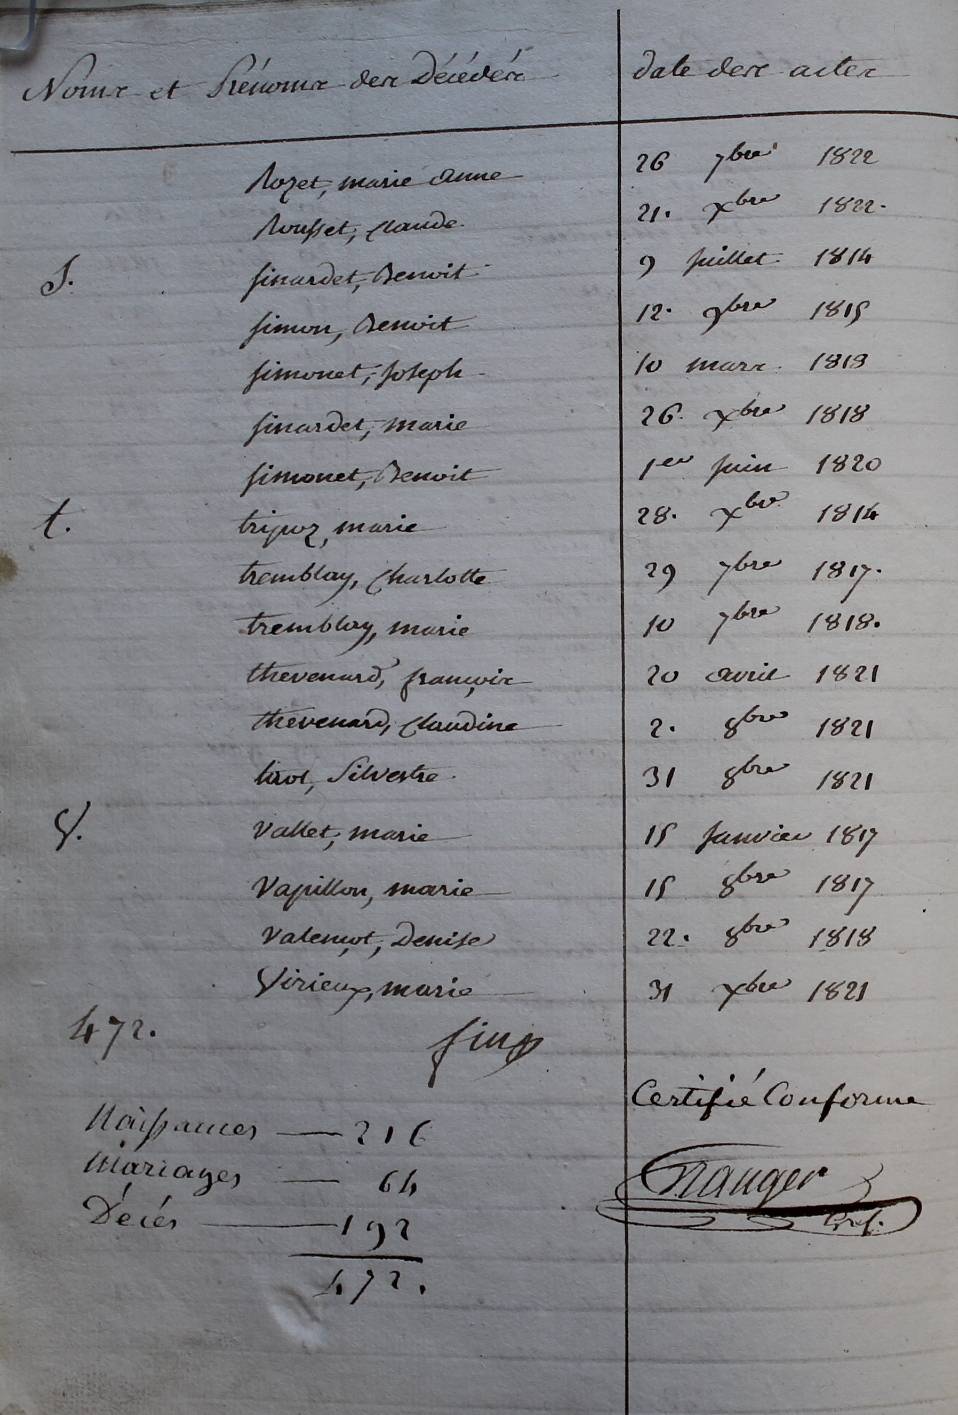 Noms et Prénoms des Décédés date des actes
Rozet, marie anne 26 7bre 1822
Rousset, claude 21. xbre 1822.
S. sinardet, Benoit 9 juillet 1814
simon, Benoit 12. 9bre 1815
simonet, joseph 10 mars 1818
sinardet, marie 26. xbre 1818
simonet, Benoit 1er juin 1820
t. tripoz, marie 28. xbre 1814
tremblay, Charlotte 29 7bre 1817.
tremblay, marie 10 7bre 1818.
thevenard, françois 20 avril 1821
thevenard, claudine 2. 8bre 1821
Silvestre 31 8bre 1821
V. Vallet, marie 15 janvier 1817
Vapillon, marie 15 8bre 1817
Valençot, Denise 22. 8bre 1818
Virieux, marie 31 xbre 1821
472. fin
Certifié Conforme
Naissances — 216
Mariages — 64
Décès — 192
472.